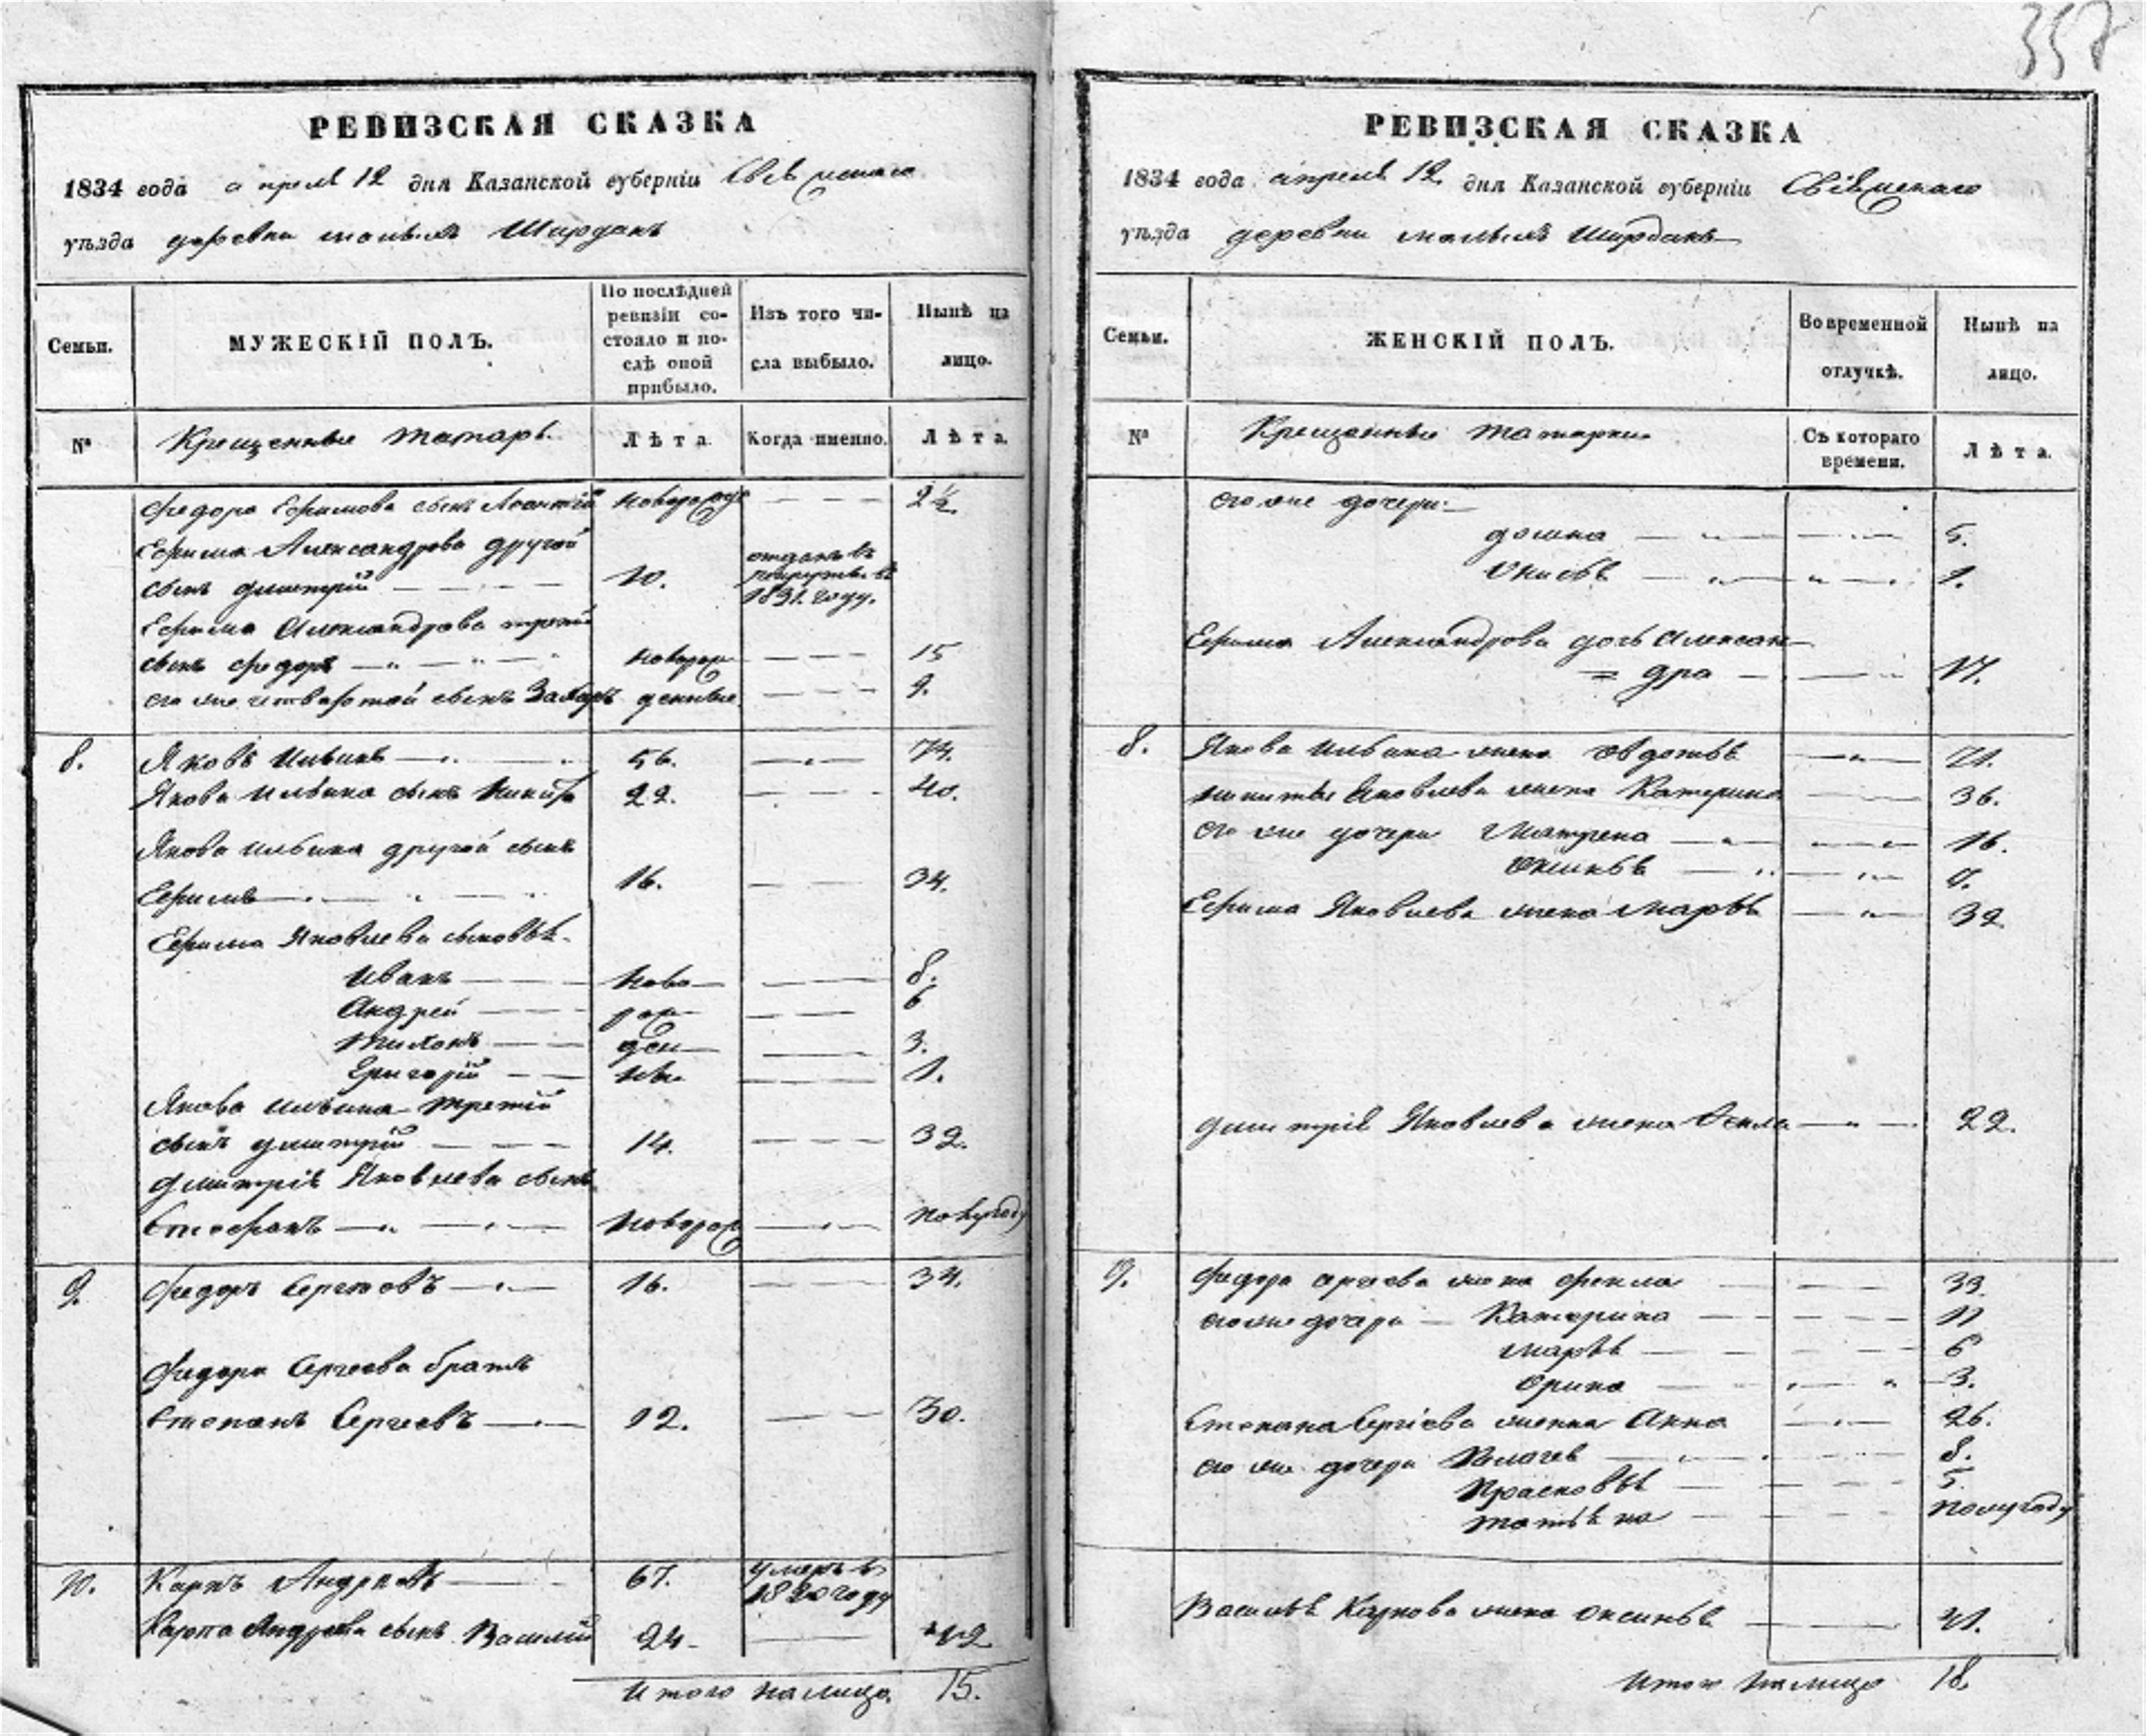 357
РЕВИЗСКАЯ СКАЗКА
1834 года апреля 12 дня Казанской губерніи Свіяжскаго
уѣзда деревни малыхъ Ширданъ
Семьи.
МУЖЕСКІЙ ПОЛЪ.
По послѣдней
ревизіи со-
стояло и по-
слѣ оной
прибыло.
Изъ того чи-
сла выбыло.
Нынѣ на
лицо.
№
Крещенные татары.
Лѣта.
Когда именно.
Лѣта.
Федора Ефимова сынъ Леонтій новорож 2½
Ефима Александрова другой
сынъ дмитрій 10. отданъ въ рекруты въ 1831. году.
Ефима Александрова третій
сынъ федоръ новорож 15
его же четвертой сынъ Захаръ денные 9.
8. Яковъ Ильинъ 56. 74.
Якова Ильина сынъ Никита 22. 40.
Якова Ильина другой сынъ
Ефимъ 16. 34.
Ефима Яковлева сыновья
Иванъ ново 8.
Андрей рож 6
Тихонъ ден 3.
Григорій ные 1.
Якова Ильина третій
сынъ дмитрій 14. 32.
дмитрія Яковлева сынъ
Стефанъ новорож полугоду
9. Федоръ Сергеевъ 16. 34.
Федора Сергеева братъ
Степанъ Сергеевъ 12. 30.
10. Карпъ Андреевъ 67. умеръ въ 1820 году
Карпа Андреева сынъ Василій 24. 42
Итого налицо 15.
РЕВИЗСКАЯ СКАЗКА
1834 года апреля 12 дня Казанской губерніи Свіяжскаго
уѣзда деревни малыхъ Ширданъ
Семьи.
ЖЕНСКІЙ ПОЛЪ.
Во временной
отлучкѣ.
Нынѣ на
лицо.
№
Крещенные татарки
Съ котораго
времени.
Лѣта.
его же дочери
домна 5.
1.
Ефима Александрова дочь Алексан-
= дра 17.
8. Якова Ильина жена Овдотья 71.
Никиты Яковлева жена Катерина 36.
его же дочери Матрена 16.
Оксинья
Ефима Яковлева жена Марья 32
дмитрія Яковлева жена 22.
9. Федора Сергеева жена Фекла 33.
его же дочери Катерина 11
Марья 6
Орина 3.
Степана Сергіева женка Анна 26.
его же дочери 8.
Прасковья 5
Татьяна полугоду
Василья Карпова жена Оксинья 41.
Итого налицо 18.